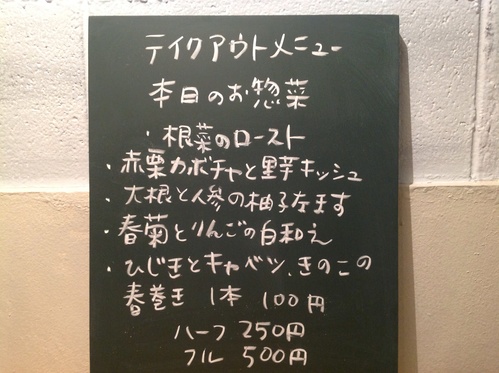 テイクアウトメニュー
本日のお惣菜
・根菜のロースト
・赤栗カボチャと里芋キッシュ
・大根と人参の柚子なます
・春菊とりんごの白和え
・ひじきとキャベツ、きのこの
春巻き 1本 100円
ハーフ 250円
フル 500円